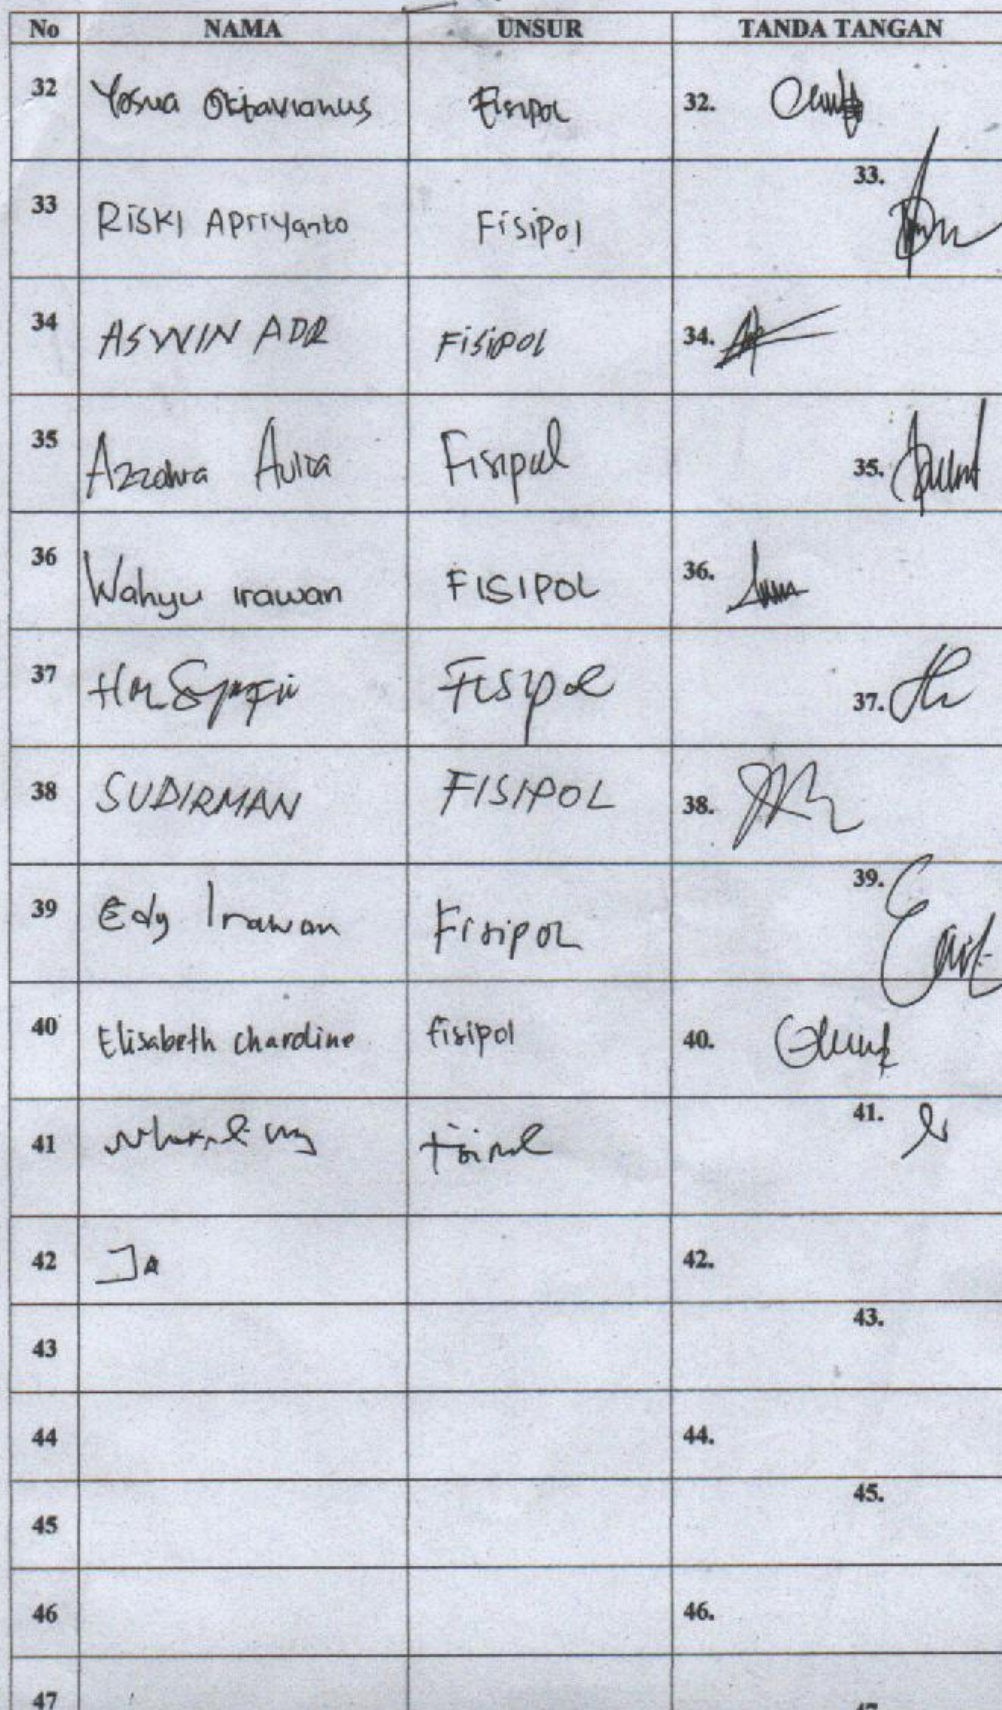 No NAMA UNSUR TANDA TANGAN
32 Yosua Oktavianus Fisipol 32.
33 Riski Apriyanto Fisipol 33.
34 ASWIN ADR Fisipol 34.
35 Azzahra Aulia Fisipol 35.
36 Wahyu irawan FISIPOL 36.
37 Fisipol 37.
38 SUDIRMAN FISIPOL 38.
39 Edy Irawan Fisipol 39.
40 Elisabeth chardine fisipol 40.
41 Fisipol 41.
42 42.
43 43.
44 44.
45 45.
46 46.
47 47.